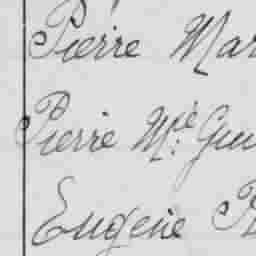 Pierre Mar
Pierre Mié Gui
Eugène